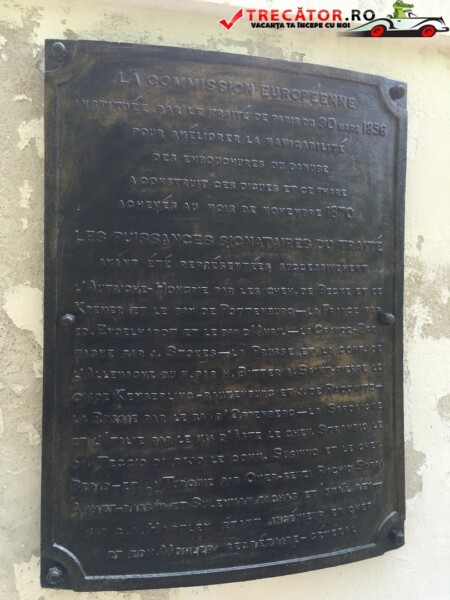 TRECĂTOR.RO
VACANȚA TA ÎNCEPE CU NOI
LA COMMISSION EUROPÉENNE
INSTITUÉE PAR LE TRAITÉ DE PARIS DU 30 MARS 1856
POUR AMÉLIORER LA NAVIGABILITÉ
DES EMBOUCHURES DU DANUBE
A CONSTRUIT CES DIGUES ET CE PHARE
ACHEVÉS AU MOIS DE NOVEMBRE 1870
LES PUISSANCES SIGNATAIRES DU TRAITÉ
AYANT ÉTÉ REPRÉSENTÉES SUCCESSIVEMENT
L'AUTRICHE-HONGRIE PAR LES CHEV. DE BECKE ET DE
KREMER ET LE BON DE POTTENBURG—LA FRANCE PAR
ED. ENGELHARDT ET LE BON D'AVRIL—LA GRANDE-BRE
TAGNE PAR J. STOKES—LA PRUSSE ET LA
L'ALLEMAGNE DU N. PAR H. BITTER J. SAINT-PIERRE LE
LA RUSSIE PAR LE BON D'OFFENBERG—LA SARDAIGNE
ET L'ITALIE PAR LE MIS D'ASTE LE CHEV. STRAMBIO LE
ET LA TURQUIE PAR OMER
AHMET-RASSIM ET SULEYMAN
SIR C.A. HARTLEY ÉTANT INGÉNIEUR EN CHEF
ET EDM. MOHLER SECRÉTAIRE-GÉNÉRAL